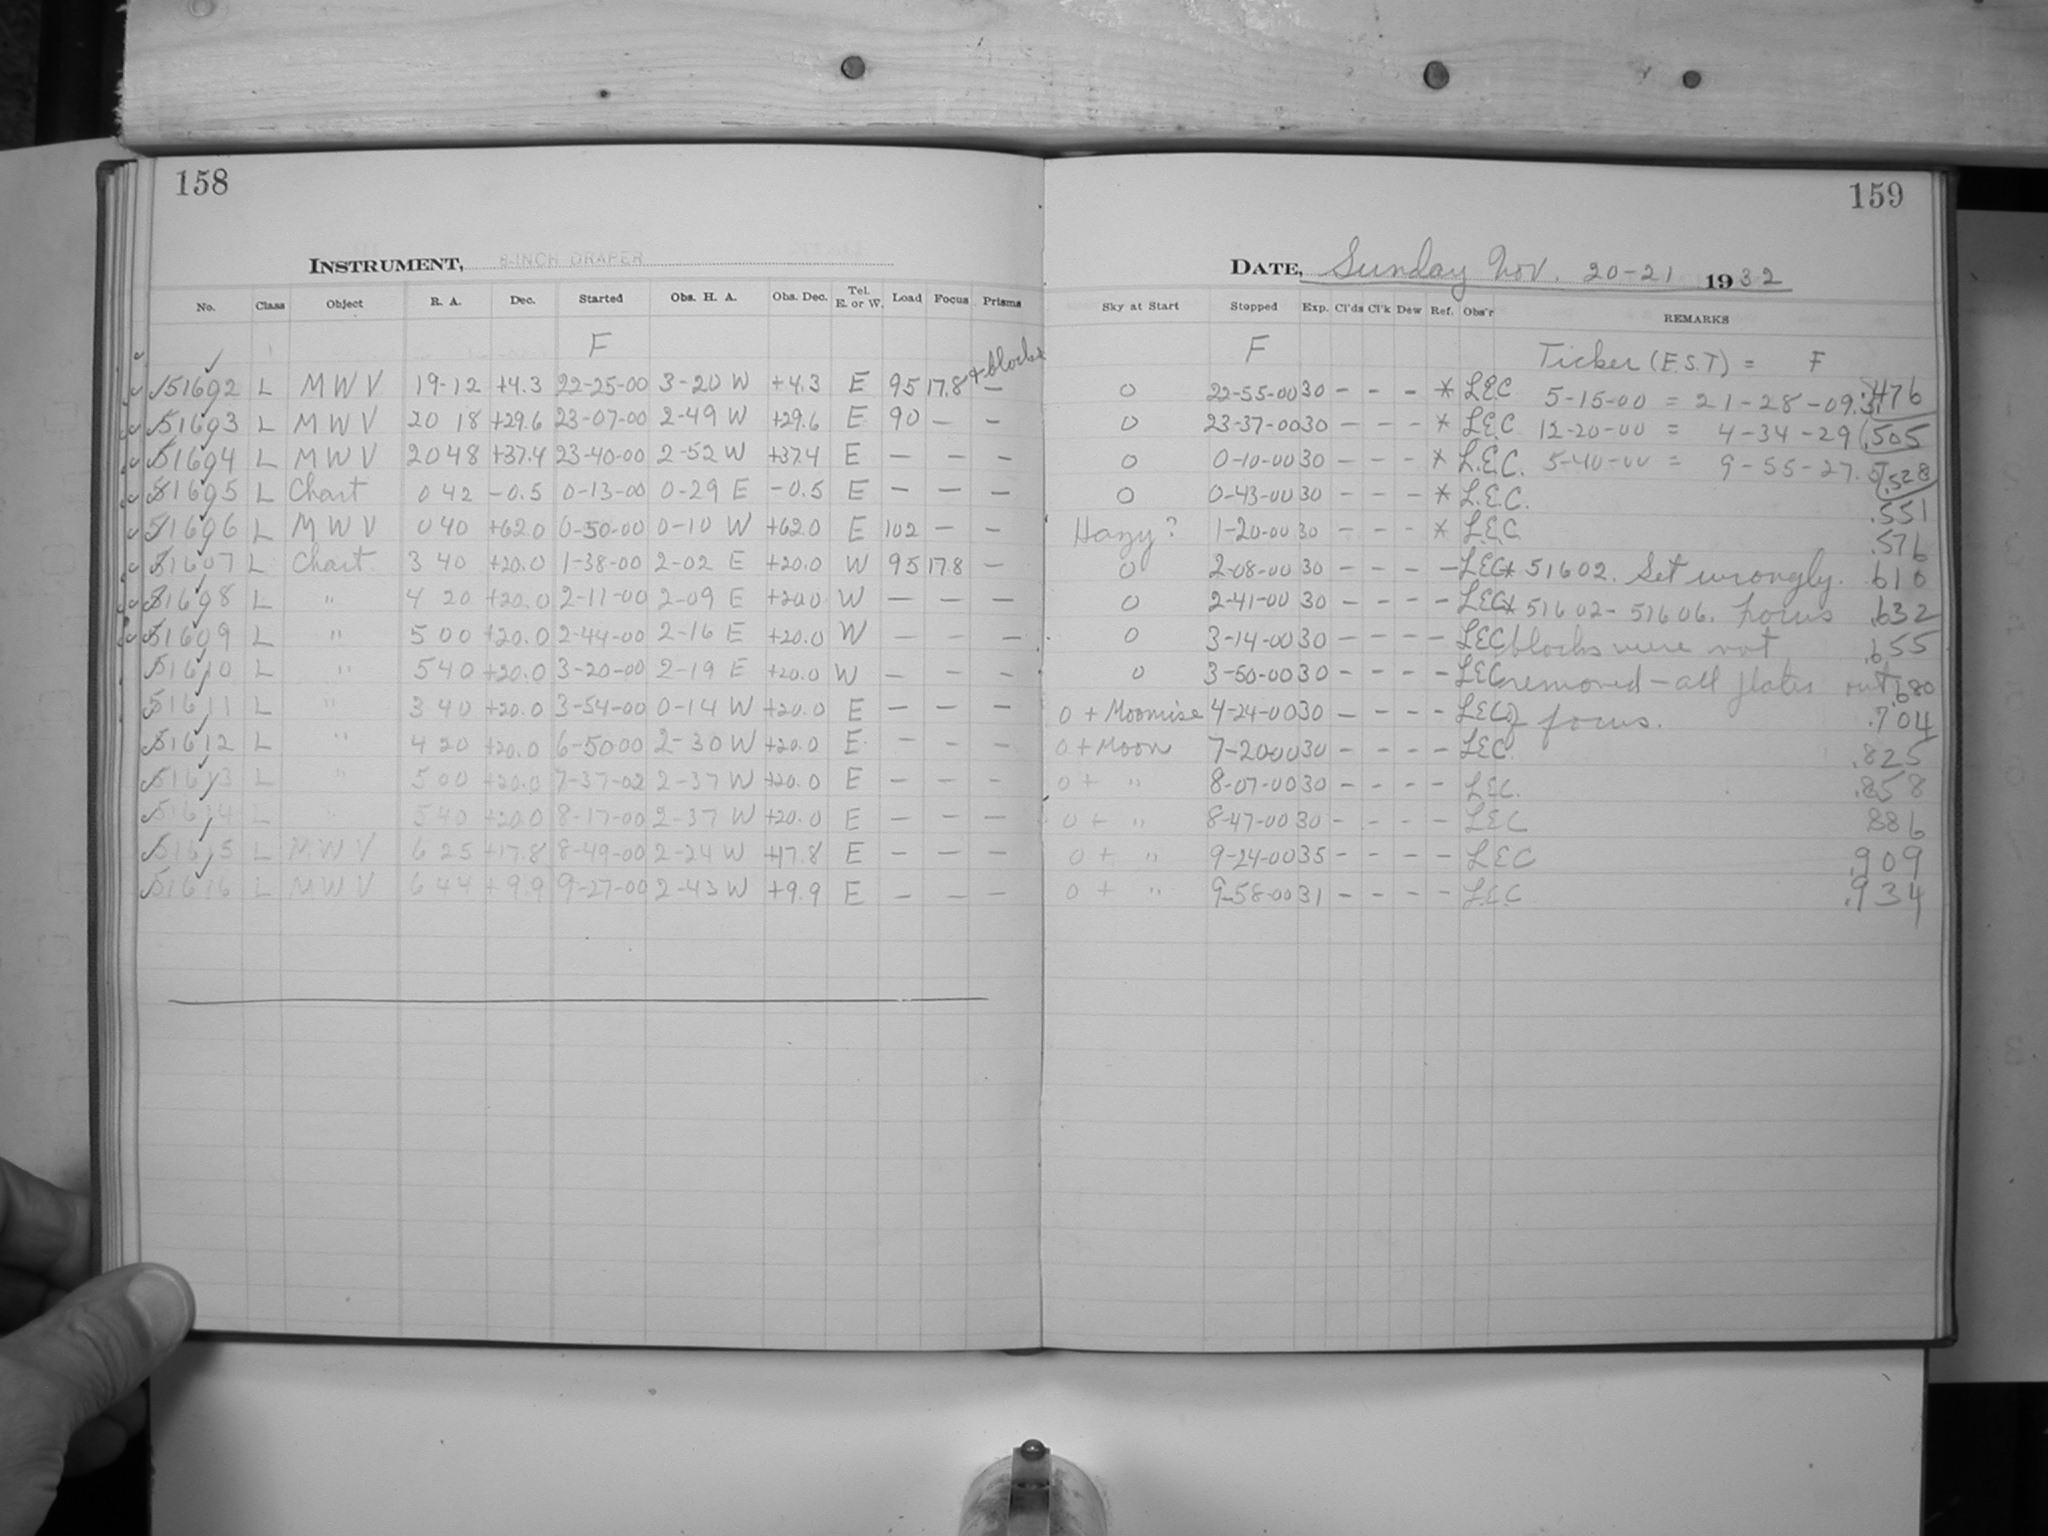 158
INSTRUMENT, 8-INCH DRAPER
No. Class Object R. A. Dec. Started Obs. H. A. Obs. Dec. Tel. E. or W. Load Focus Prisms
F
+ blocks
51602 L M W V 19-12 +4.3 22-25-00 3-20 W +4.3 E 95 17.8 —
51603 L M W V 20 18 +29.6 23-07-00 2-49 W +29.6 E 90 — —
51604 L M W V 20 48 +37.4 23-40-00 2-52 W +37.4 E — — —
51605 L Chart 0 42 -0.5 0-13-00 0-29 E -0.5 E — — —
51606 L M W V 0 40 +62.0 0-50-00 0-10 W +62.0 E 102 — —
51607 L Chart 3 40 +20.0 1-38-00 2-02 E +20.0 W 95 17.8 —
51608 L " 4 20 +20.0 2-11-00 2-09 E +20.0 W — — —
51609 L " 5 00 +20.0 2-44-00 2-16 E +20.0 W — — —
51610 L " 5 40 +20.0 3-20-00 2-19 E +20.0 W — — —
51611 L " 3 40 +20.0 3-54-00 0-14 W +20.0 E — — —
51612 L " 4 20 +20.0 6-50 00 2-30 W +20.0 E — — —
51613 L " 5 00 +20.0 7-37-02 2-37 W +20.0 E — — —
51614 L " 5 40 +20.0 8-17-00 2-37 W +20.0 E — — —
51615 L M W V 6 25 +17.8 8-49-00 2-24 W +17.8 E — — —
51616 L M W V 6 44 +9.9 9-27-00 2-43 W +9.9 E — — —
159
DATE, Sunday Nov. 20-21 1932
Sky at Start Stopped Exp. Cl'ds Cl'k Dew Ref. Obs'r REMARKS
F Ticker (E.S.T) = F
0 22-55-00 30 - - - * L.E.C. 5-15-00 = 21-28-09.3 .476
0 23-37-00 30 - - - * L.E.C. 12-20-00 = 4-34-29 .505
0 0-10-00 30 - - - * L.E.C. 5-40-00 = 9-55-27.5 .528
0 0-43-00 30 - - - * L.E.C. .551
Hazy? 1-20-00 30 - - - * L.E.C. .576
0 2-08-00 30 - - - - LEC * 51602. Set wrongly. .610
0 2-41-00 30 - - - - LEC * 51602-51606. Focus .632
0 3-14-00 30 - - - - LEC blocks were not .655
0 3-50-00 30 - - - - LEC removed — all plates out .680
0 + Moonrise 4-24-00 30 - - - - LEC of focus. .704
0 + Moon 7-20 00 30 - - - - LEC .825
0 + " 8-07-00 30 - - - - LEC. .858
0 + " 8-47-00 30 - - - - LEC .886
0 + " 9-24-00 35 - - - - LEC .909
0 + " 9-58-00 31 - - - - L.E.C. .934